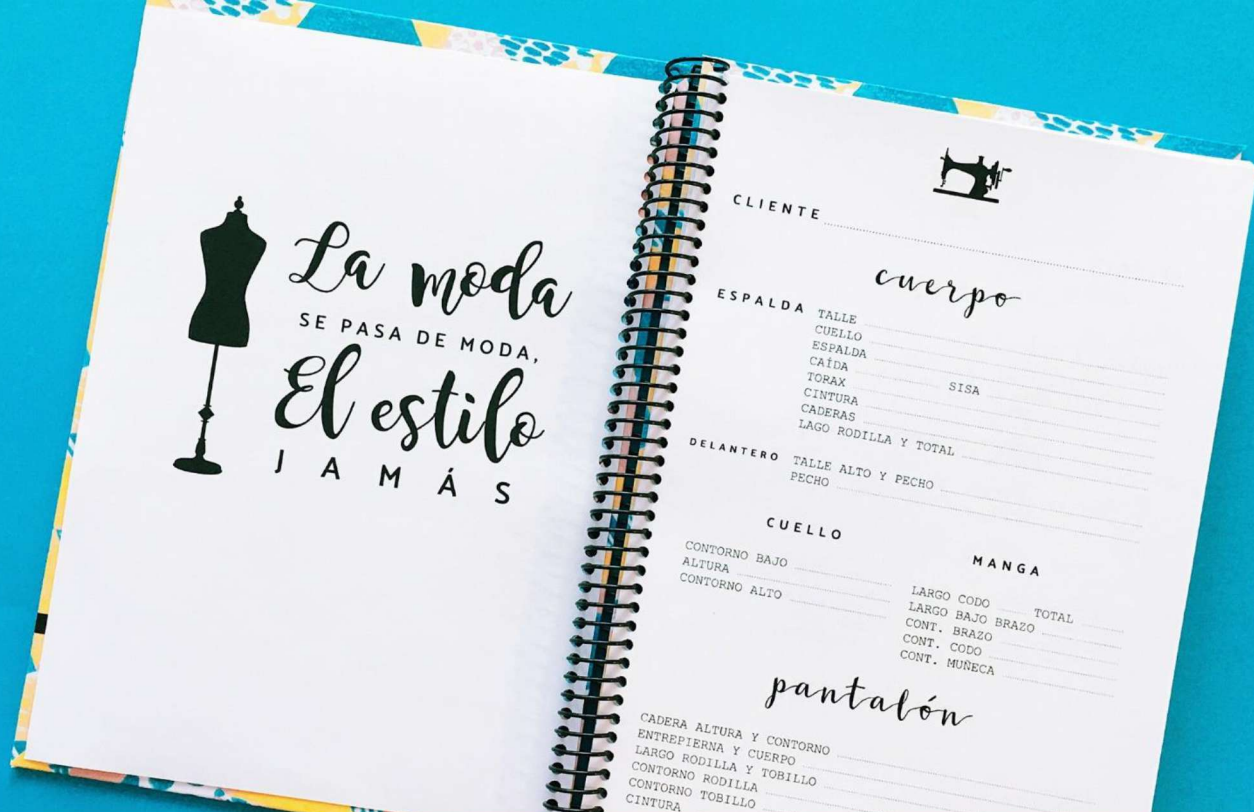 La moda
SE PASA DE MODA,
El estilo
JAMÁS
CLIENTE
cuerpo
ESPALDA TALLE
CUELLO
ESPALDA
CAÍDA
TORAX SISA
CINTURA
CADERAS
LAGO RODILLA Y TOTAL
DELANTERO TALLE ALTO Y PECHO
PECHO
CUELLO
CONTORNO BAJO
ALTURA
CONTORNO ALTO
MANGA
LARGO CODO TOTAL
LARGO BAJO BRAZO
CONT. BRAZO
CONT. CODO
CONT. MUÑECA
pantalón
CADERA ALTURA Y CONTORNO
ENTREPIERNA Y CUERPO
LARGO RODILLA Y TOBILLO
CONTORNO RODILLA
CONTORNO TOBILLO
CINTURA